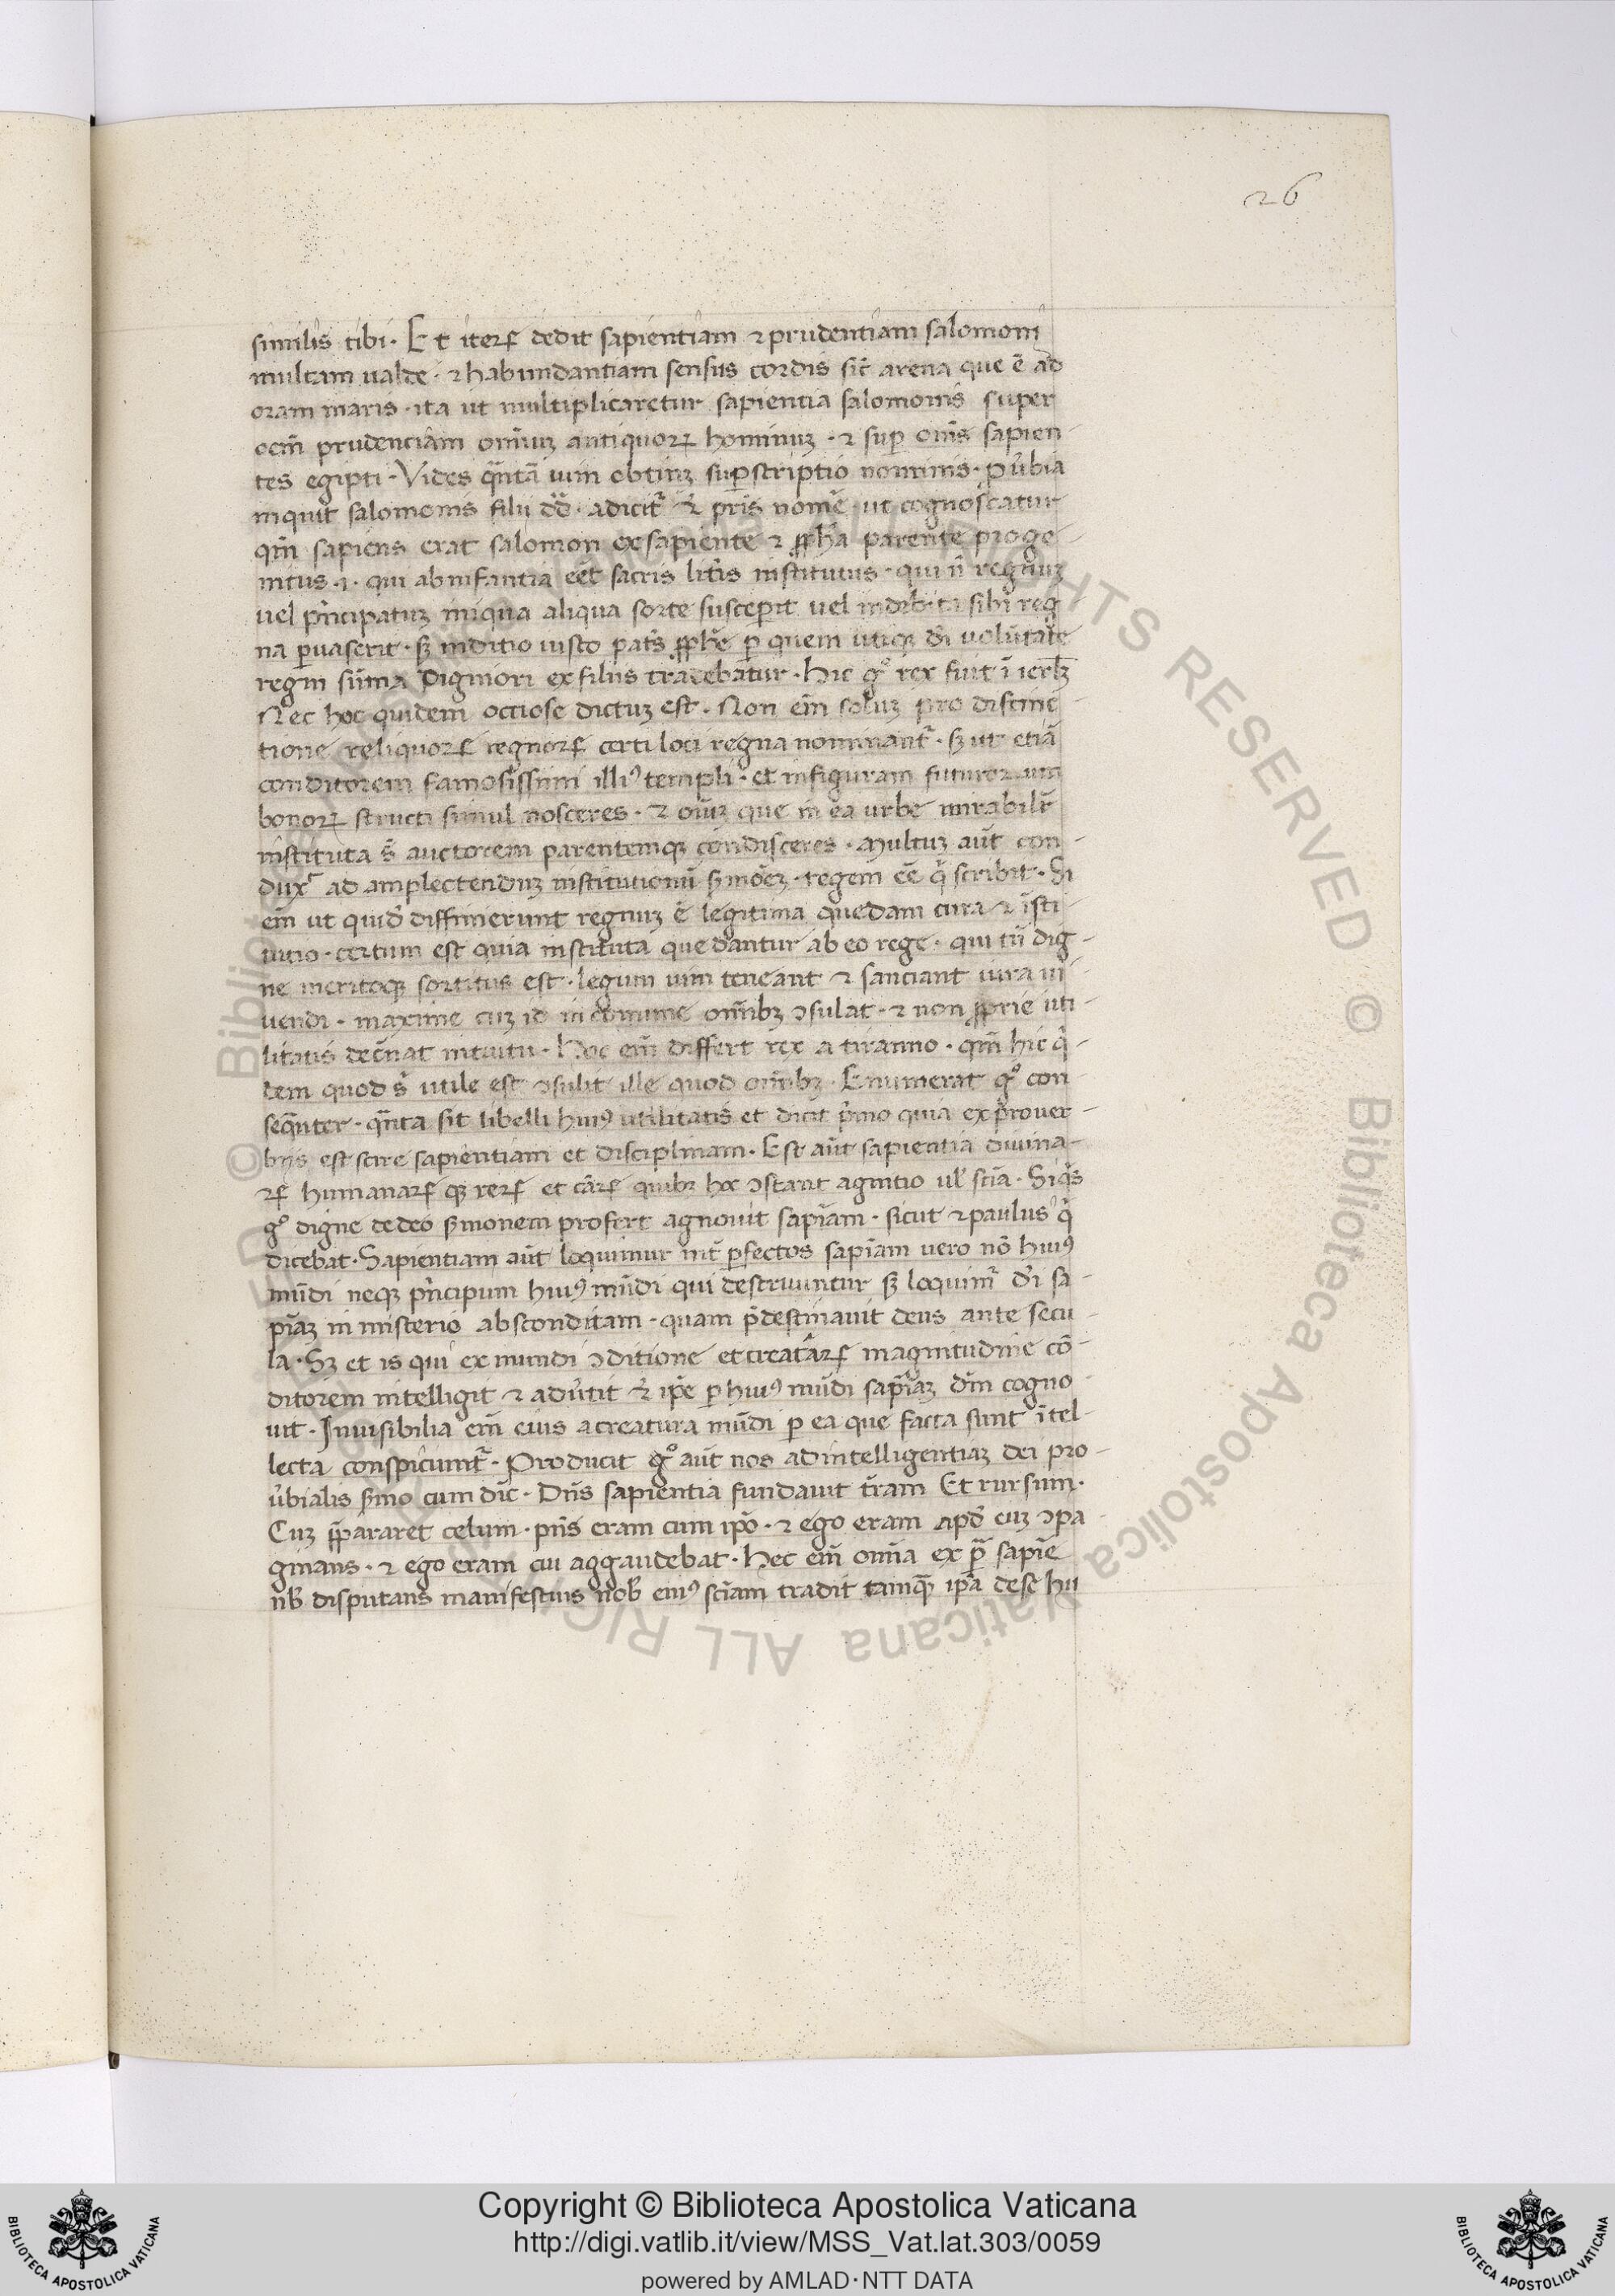 26
similis tibi. Et iterꝝ dedit sapientiam ⁊ prudentiam salomoni
multam ualde. ⁊ habundantiam sensus cordis sic̄ arena que ē ad
oram maris. ita ut multiplicaretur sapientia salomonis super
oem̄ prudenciam omīuꝫ antiquoꝝ hominuꝫ. ⁊ suꝑ omīs sapien-
tes egipti. Vides qn̄tā uim obtinꝫ suꝑscriptio nominis. ꝓu̓bia
inquit salomonis filii dd̄. adicit᷑ ⁊ pr̄is nomē. ut cognoscatur
qm̄ sapiens erat salomon ex sapiente ⁊ ꝓph̄a parente proge-
nitus. qui ab infantia eēt sacris litt̄is institutus. qui n̄ regnuꝫ
uel pn̄cipatuꝫ iniqua aliqua sorte suscepit uel indeb ita sibi reg
na ꝑuaserit. sꝫ inditio iusto pat̄s ꝓph̄e ꝑ quem utiqꝫ dī volūtate
regni sūma digniori ex filiis tradebatur. Hic gͦ rex fuit ī ierl̄m
Nec hoc quidem occiose dictuꝫ est. Non em̄ soluꝫ pro distinc-
tione reliquoꝝ regnoꝝ certi loci regna nominant᷑. sꝫ ut etiā
conditorem famosissimi illiꝰ templi. et in figuram futurorum
bonoꝝ structi simul nosceres. ⁊ omīuꝫ que in ea urbe mirabilr̄
instituta s̄ auctorem parentemqꝫ condisceres. Multuꝫ aūt con-
dux᷑ ad amplectenduꝫ institutionū s̄moēꝫ. regem eē q̄ scribit. Si
em̄ ut quidē diffinierunt regnuꝫ ē legitima quedam cura ⁊ īsti-
tutio. certum est quia instituta que dantur ab eo rege. qui tn̄ dig-
ne meritoqꝫ sortitus est. legum uim teneant ⁊ sanciant iura ui-
uendi. maxime cuꝫ id in comune omībꝫ ↄsulat. ⁊ non ꝓprie uti-
litatis dec̄nat intuitu. Hoc em̄ differt rex a tiranno. qm̄ hic q̄-
dem quod s̄ utile est ↄsulit ille quod omībꝫ. Enumerat gͦ con-
seqn̄ter. qn̄ta sit libelli huiꝰ utilitatis et dicit p̄mo quia ex prouer-
biis est scire sapientiam et disciplinam. Est aūt sapientia diuina-
ꝝ humanaꝝ qꝫ reꝝ et cāꝝ quibꝫ hoc ↄstant agnitio ul̄ scīa. Siq̄s
gͦ digne de deo s̄monem profert agnouit sapīam. sicut ⁊ paulus q̄
dicebat. Sapientiam aūt loquimur int̄ ꝑfectos sapīam uero nō huiꝰ
mūdi neqꝫ pn̄cipum huiꝰ mūdi qui destruuntur sꝫ loquim᷑ dī sa-
pīaꝫ in misterio absconditam. quam p̄destinauit deus ante secu-
la. Sꝫ et is qui ex mundi ↄditione et creatāꝝ magnitudine cō-
ditorem intelligit ⁊ adu̓tit ⁊ ip̄e ꝑ huiꝰ mūdi sapīaꝫ dm̄ cogno-
uit. Inuisibilia em̄ eius a creatura mūdi ꝑ ea que facta sunt ītel-
lecta conspiciunt᷑. Producit gͦ aūt nos ad intelligentiaꝫ dei pro-
u̓bialis s̄mo cum dīc. Dn̄s sapientia fundauit t̄ram Et rursum.
Cuꝫ p̄pararet celum. pn̄s eram cum ip̄o. ⁊ ego eram apd̄ euꝫ ↄpa-
ginans. ⁊ ego eram cui aggaudebat. Hec em̄ omīa ex pͣ sapīe
nb̄ disputans manifestius nob̄ eiuꝰ scīam tradit tamqꝫ ip̄a de se hu
Copyright © Biblioteca Apostolica Vaticana
http://digi.vatlib.it/view/MSS_Vat.lat.303/0059
powered by AMLAD·NTT DATA
BIBLIOTECA APOSTOLICA VATICANA
BIBLIOTECA APOSTOLICA VATICANA